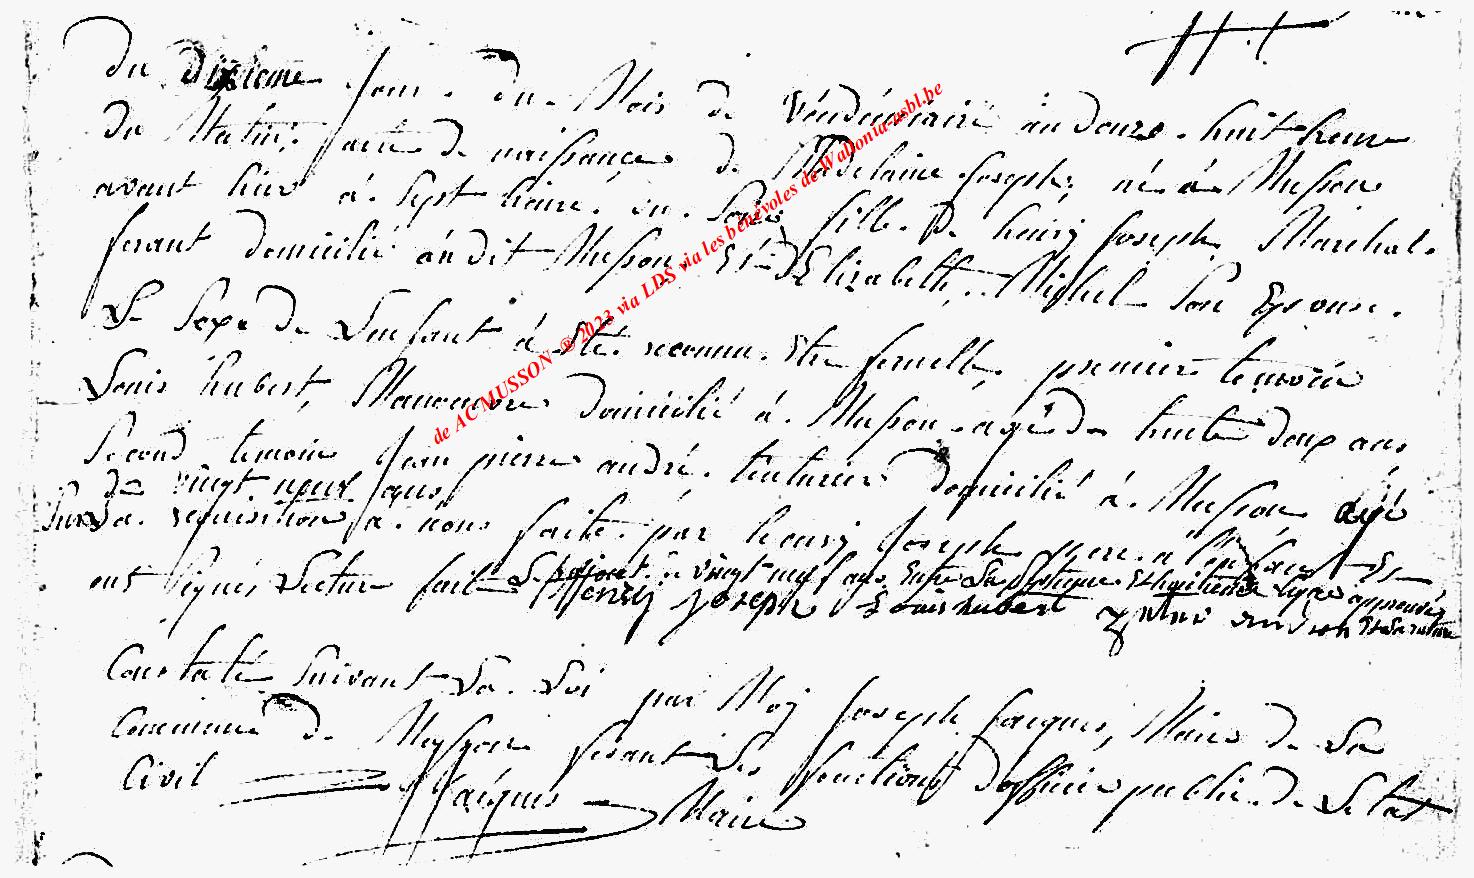 Du Dixieme Jour. du. Mois de Véndémiaire án douze. huit heure
du Matin; acte de naissançe de Madelaine Joseph; né á Musson
avant hier á. sept heure. du. soir, fille. D. henry Joseph. Marchal.
ferant domicilié ándit Musson, Et d'Elizabetth, Michel son Epouse.
Le sexe de L'enfant á Etté. reconnu. Etre femelle, premier temoin
Louis hubert, Manoeuvre domicilié á. Musson. agé de trente deux ans
second temoin Jean pierre andré. tinturier domicilié á. Musson agé
de vingt neuf ans
sur La. requisition, á. nous faite. par henry Joseph pere. á L'enfant Et
ont signés, Lecture fait
henry joseph Louis hubert
Constaté suivant La. Loi par Moy Joseph Jacques, Maire de La
Commune de Mussson fesant Les fonctions d'officier public. de Letat
Civil Jacques Maire
de AC MUSSON ® 2023 via LDS via les bénévoles de Wallonia-asbl.be